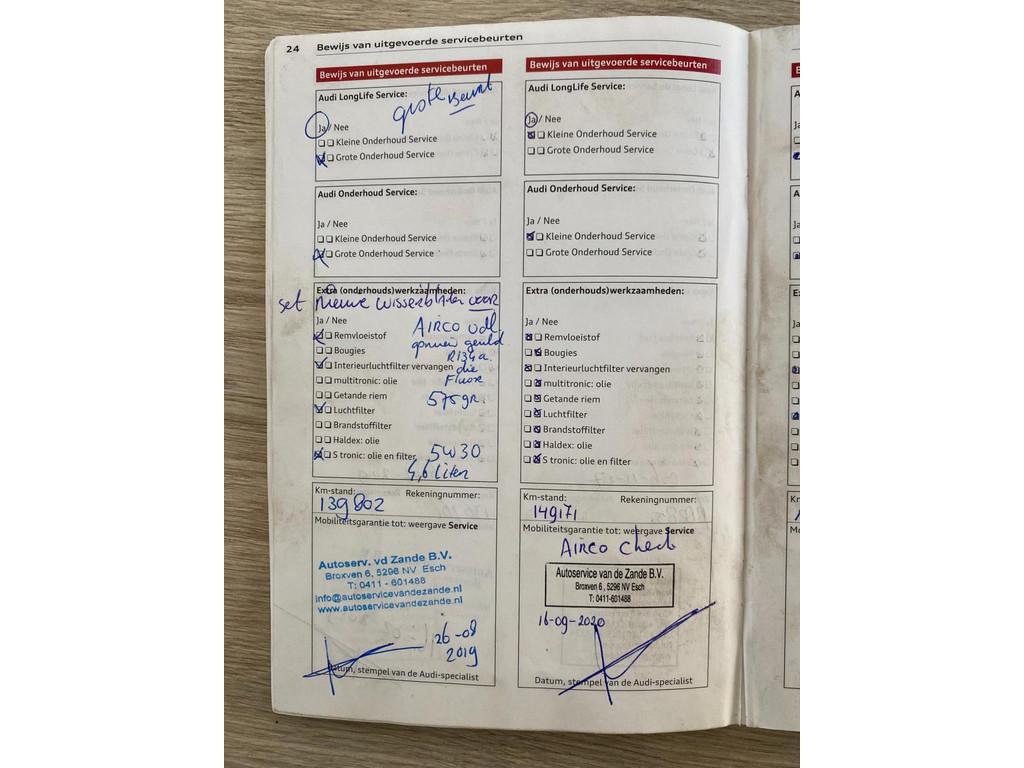 24 Bewijs van uitgevoerde servicebeurten
Bewijs van uitgevoerde servicebeurten
Audi LongLife Service:
grote Beurt
Ja / Nee
Kleine Onderhoud Service
Grote Onderhoud Service
Audi Onderhoud Service:
Ja / Nee
Kleine Onderhoud Service
Grote Onderhoud Service
Extra (onderhouds)werkzaamheden:
set nieuwe wisserbladen voor
Ja / Nee
AIRCO vdl
Remvloeistof
opnieuw gevuld
Bougies
R134a.
Interieurluchtfilter vervangen
multitronic: olie
Fluor
Getande riem
575gr.
Luchtfilter
Brandstoffilter
Haldex: olie
S tronic: olie en filter 5W30
4,6 liter
Km-stand: Rekeningnummer:
139802
Mobiliteitsgarantie tot: weergave Service
Autoserv. vd Zande B.V.
Broxven 6, 5296 NV Esch
T: 0411 - 601488
info@autoservicevandezande.nl
www.autoservicevandezande.nl
26-08
2019
Datum, stempel van de Audi-specialist
Bewijs van uitgevoerde servicebeurten
Audi LongLife Service:
Ja / Nee
Kleine Onderhoud Service
Grote Onderhoud Service
Audi Onderhoud Service:
Ja / Nee
Kleine Onderhoud Service
Grote Onderhoud Service
Extra (onderhouds)werkzaamheden:
Ja / Nee
Remvloeistof
Bougies
Interieurluchtfilter vervangen
multitronic: olie
Getande riem
Luchtfilter
Brandstoffilter
Haldex: olie
S tronic: olie en filter
Km-stand: Rekeningnummer:
149171
Mobiliteitsgarantie tot: weergave Service
AIRCO check
Autoservice van de Zande B.V.
Broxven 6, 5296 NV Esch
T: 0411-601488
16-09-2020
Datum, stempel van de Audi-specialist